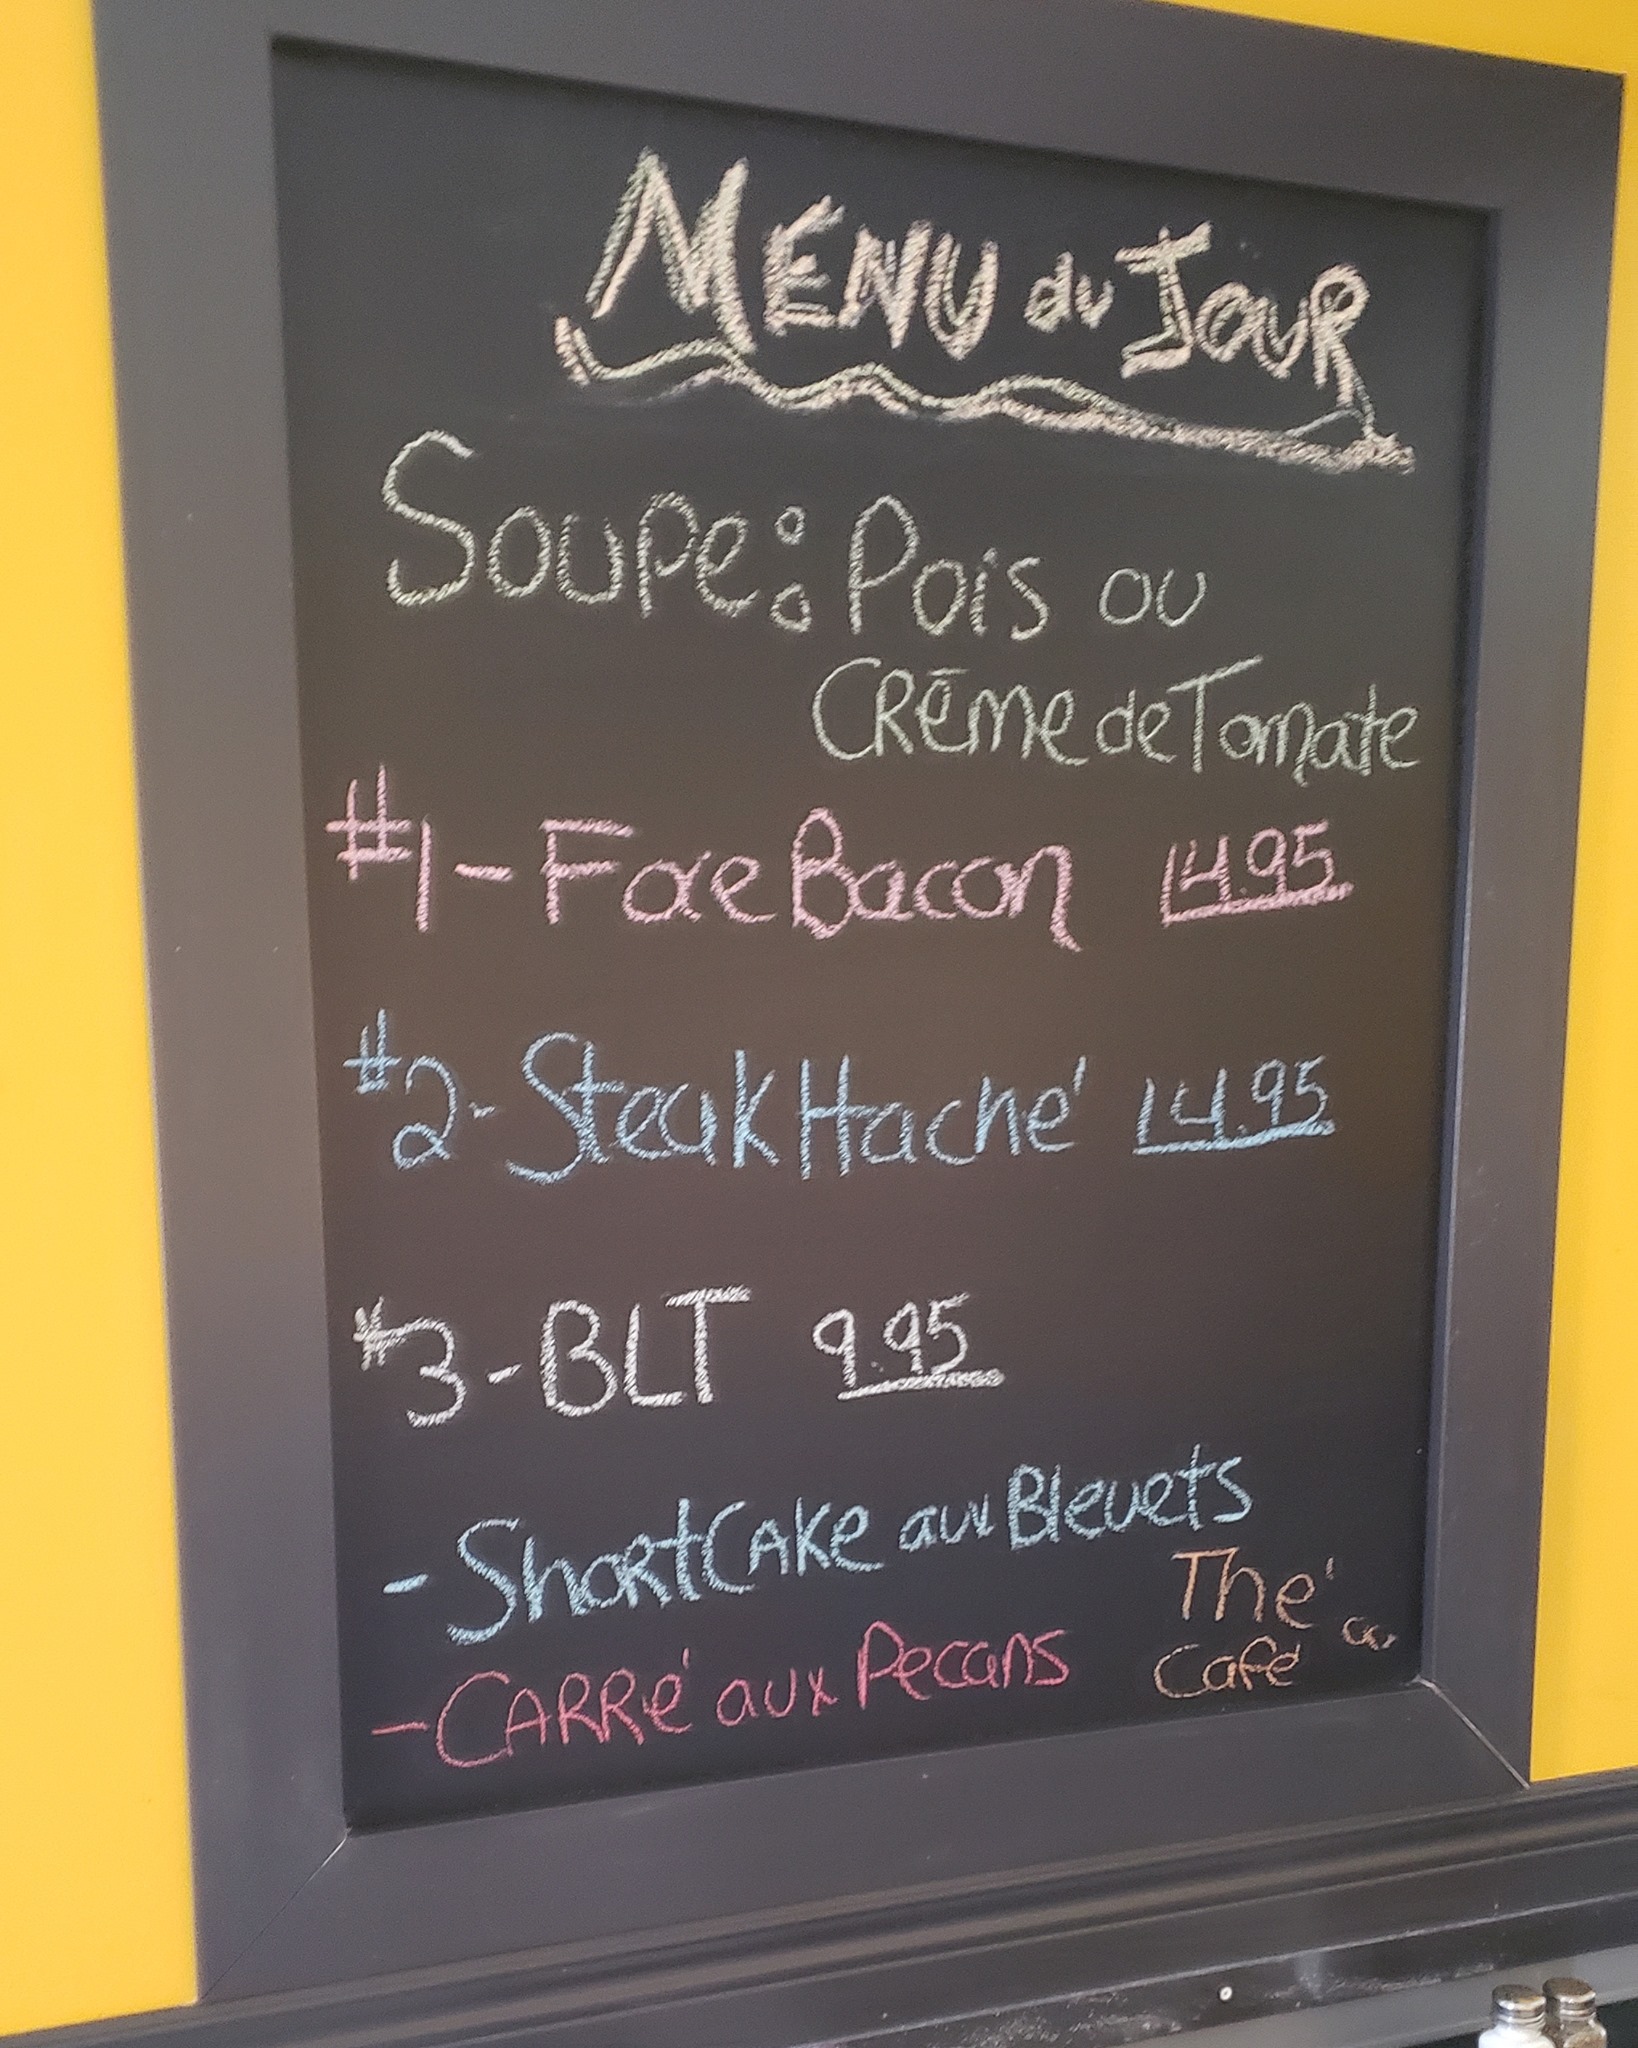 MENU du JOUR
Soupe: Pois ou
CRÈME de Tomate
#1- Foie Bacon 14.95
#2- Steak Haché 14.95
#3- BLT 9.95
- ShortCAKE aux Bleuets
- CARRé aux Pecans
Thé ou
Café